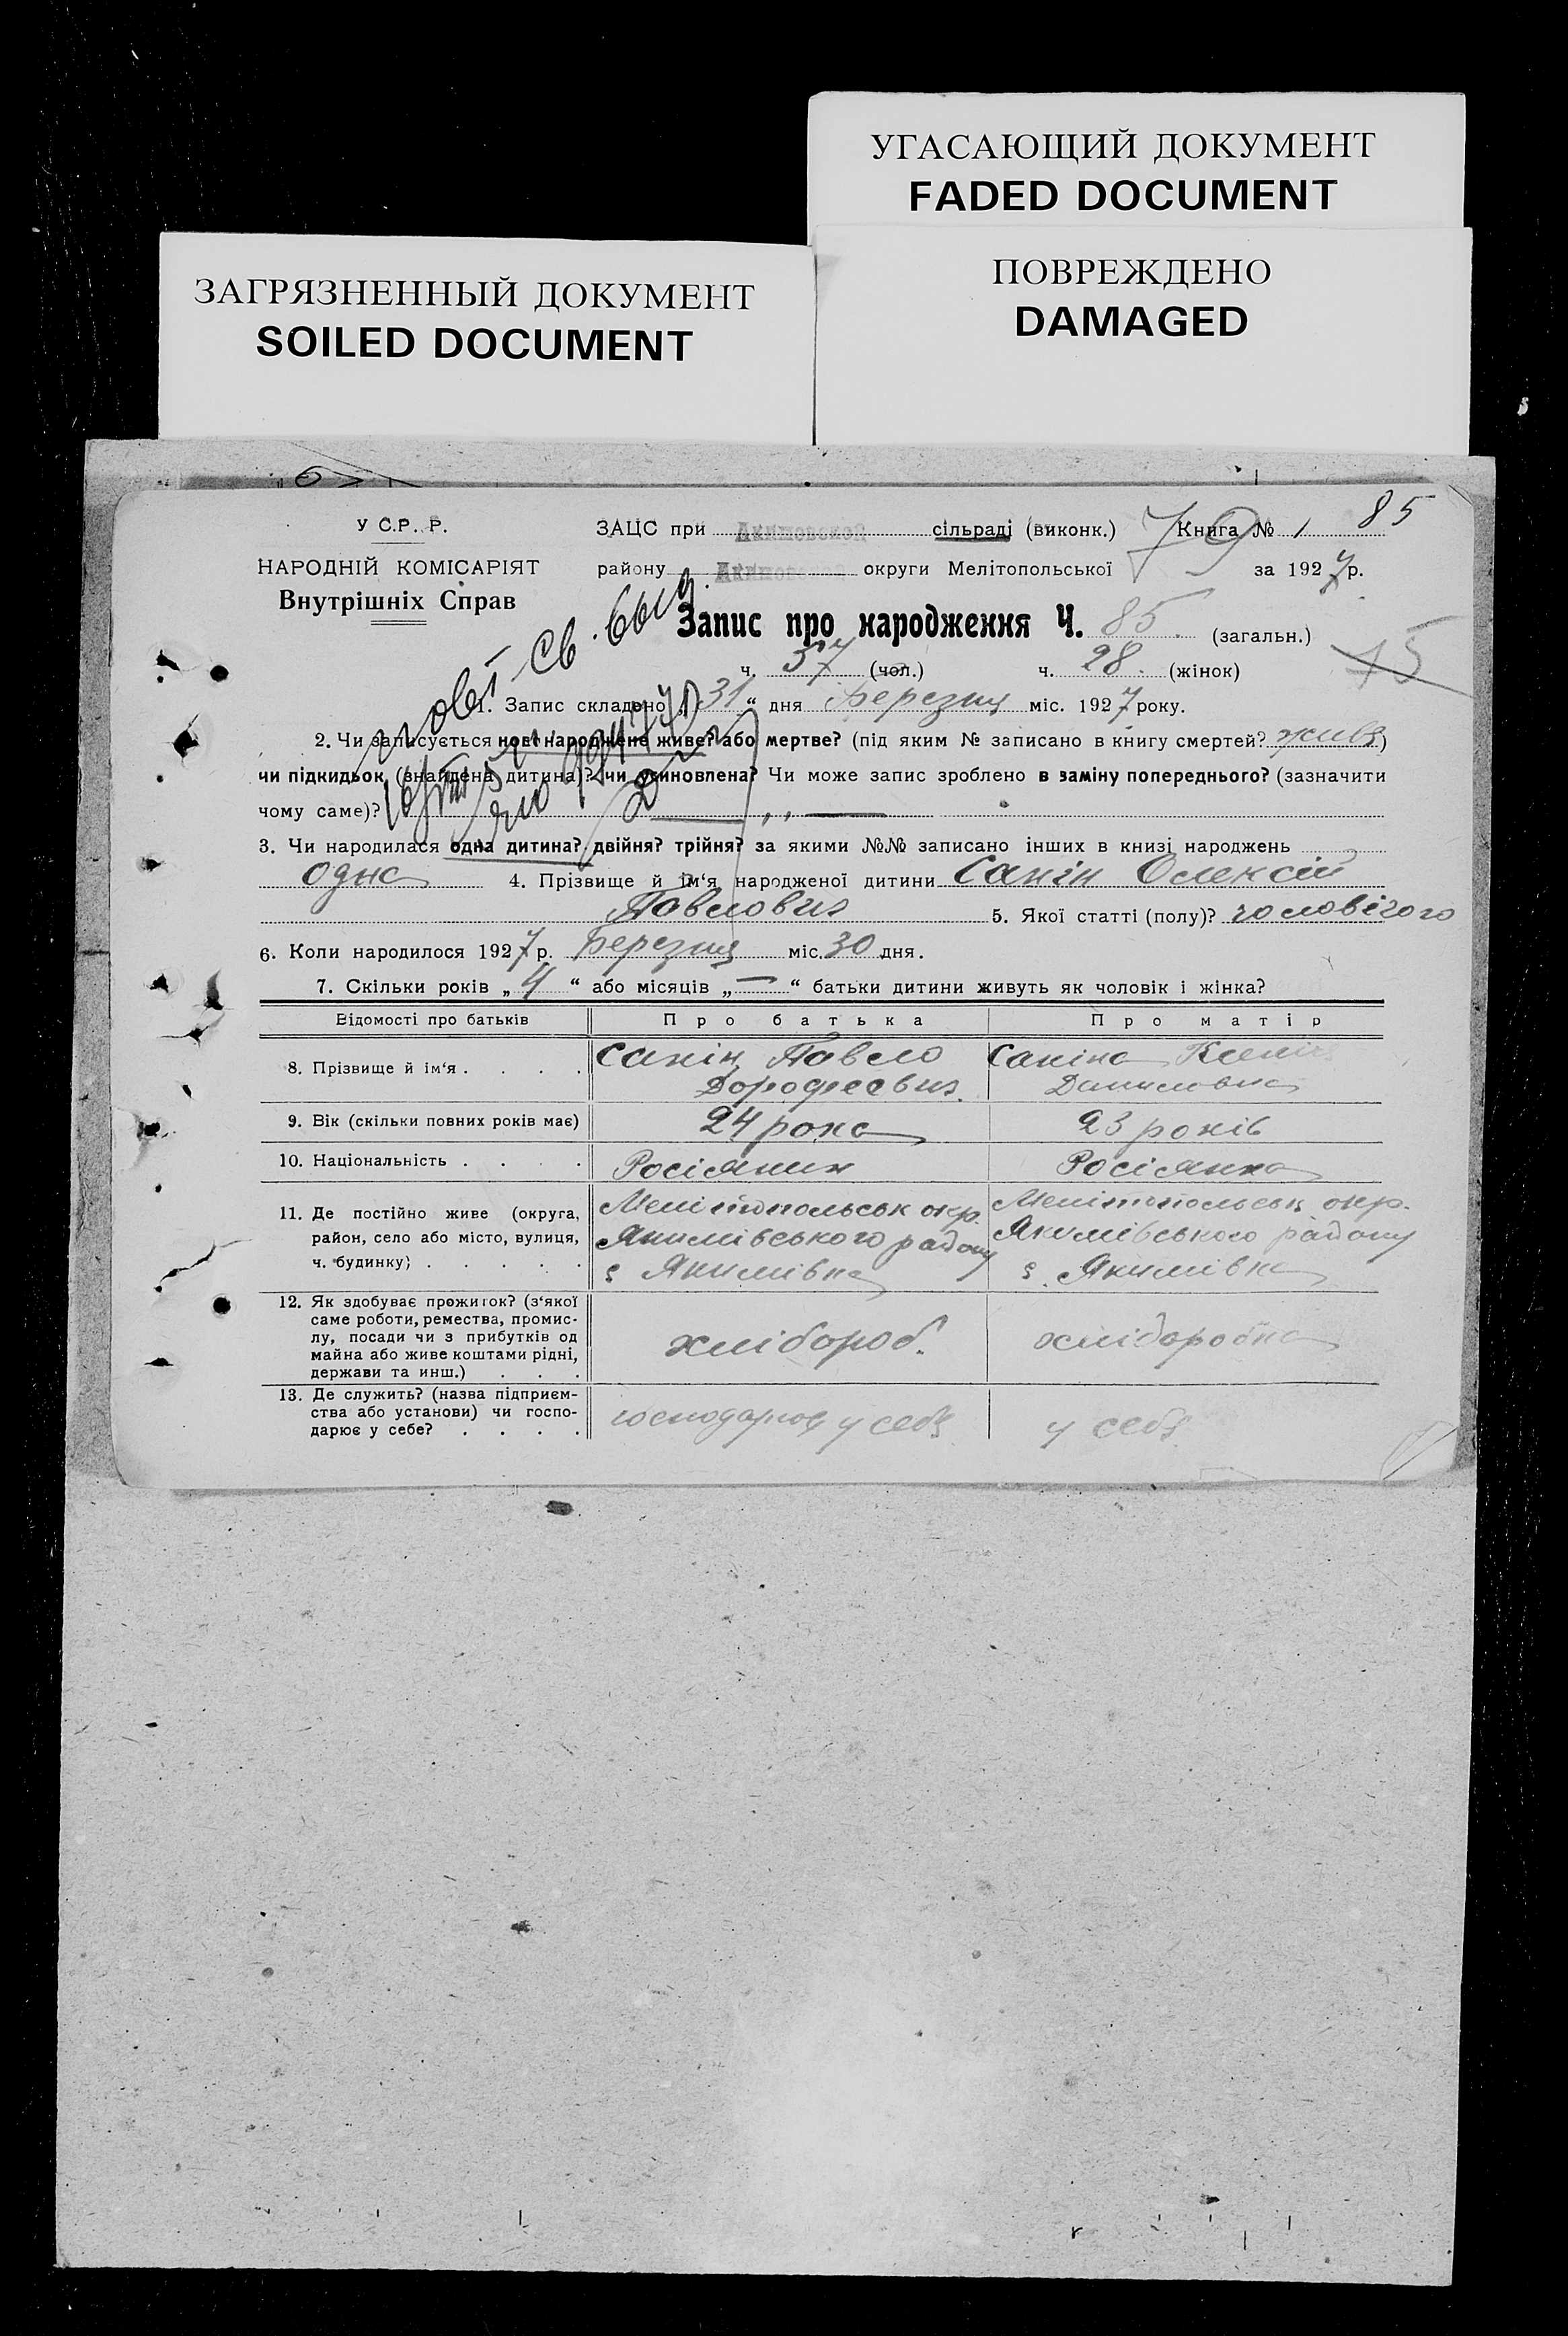 УГАСАЮЩИЙ ДОКУМЕНТ
FADED DOCUMENT
ЗАГРЯЗНЕННЫЙ ДОКУМЕНТ
SOILED DOCUMENT
ПОВРЕЖДЕНО
DAMAGED
85
У С.Р.Р.
ЗАЦС при Акимовской сільраді (виконк.) 79 Книга № 1
НАРОДНІЙ КОМІСАРІЯТ
району округи Мелітопольської за 1927 р.
Внутрішніх Справ
Запис про народження Ч. 85. (загальн.)
15
ч. 57 (чол.) ч. 28. (жінок)
1. Запис складено „31“ дня Березня міс. 1927 року.
2. Чи записується новонароджене живе? або мертве? (під яким № записано в книгу смертей? живе)
чи підкидьок (знайдена дитина)? чи усиновлена? Чи може запис зроблено в заміну попереднього? (зазначити
чому саме)?
3. Чи народилася одна дитина? двійня? трійня? за якими №№ записано інших в книзі народжень
одна 4. Прізвище й ім‘я народженої дитини Санін Олексій
Павлович 5. Якої статті (полу)? чоловічого
6. Коли народилося 1927 р. Березня міс. 30 дня.
7. Скільки років „4“ або місяців „—“ батьки дитини живуть як чоловік і жінка?
Відомості про батьків Про батька Про матір
8. Прізвище й ім‘я . . . . Санін Павло Саніна
Дорофеевич Даниловна
9. Вік (скільки повних років має) 24 рока 23 років
10. Національність . . . . Росіянин Росіянка
11. Де постійно живе (округа, Мелітопольськ окр. Мелітопольськ окр.
район, село або місто, вулиця, Якимівського району Якимівського району
ч. будинку) . . . . . с Якимівка с. Якимівка
12. Як здобуває прожиток? (з‘якої
саме роботи, ремества, промис-
лу, посади чи з прибутків од хлібороб. хліборобка
майна або живе коштами рідні,
держави та инш.) . . .
13. Де служить? (назва підприєм-
ства або установи) чи госпо- господарює у себе у себе
дарює у себе? . . . .